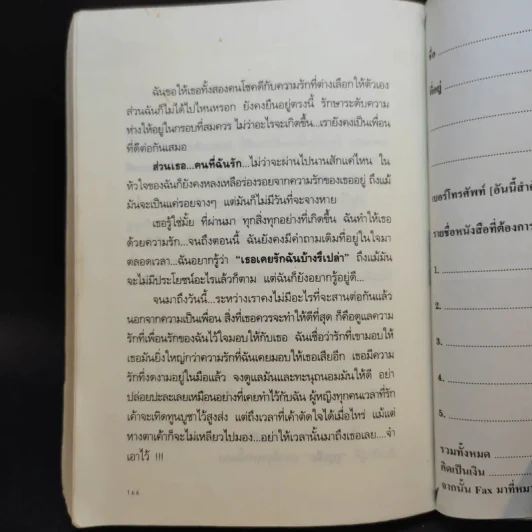 ฉันขอให้เธอทั้งสองคนโชคดีกับความรักที่ต่างเลือกให้ตัวเอง
ส่วนฉันก็ไม่ได้ไปไหนหรอก ยังคงยืนอยู่ตรงนี้ รักษาระดับความ
ห่างให้อยู่ในกรอบที่สมควร ไม่ว่าอะไรจะเกิดขึ้น...เรายังคงเป็นเพื่อน
ที่ดีต่อกันเสมอ
ส่วนเธอ...คนที่ฉันรัก...ไม่ว่าจะผ่านไปนานสักแค่ไหน ใน
หัวใจของฉันก็ยังคงหลงเหลือร่องรอยจากความรักของเธออยู่ ถึงแม้
มันจะเป็นแค่รอยจางๆ แต่มันก็ไม่มีวันที่จะจางหาย
เธอรู้ใช่มั้ย ที่ผ่านมา ทุกสิ่งทุกอย่างที่เกิดขึ้น ฉันทำให้เธอ
ด้วยความรัก...จนถึงตอนนี้ ฉันยังคงมีคำถามเดิมที่อยู่ในใจมา
ตลอดเวลา...ฉันอยากรู้ว่า "เธอเคยรักฉันบ้างรึเปล่า" ถึงแม้มัน
จะไม่มีประโยชน์อะไรแล้วก็ตาม แต่ฉันก็ยังอยากรู้อยู่ดี...
จนมาถึงวันนี้...ระหว่างเราคงไม่มีอะไรที่จะสานต่อกันแล้ว
นอกจากความเป็นเพื่อน สิ่งที่เธอควรจะทำให้ดีที่สุด ก็คือดูแลความ
รักที่เพื่อนรักของฉันไว้ใจมอบให้กับเธอ ฉันเชื่อว่ารักที่เขามอบให้
เธอมันยิ่งใหญ่กว่าความรักที่ฉันเคยมอบให้เธอเสียอีก เธอมีความ
รักที่งดงามอยู่ในมือแล้ว จงดูแลมันและทะนุถนอมมันให้ดี อย่า
ปล่อยปะละเลยเหมือนอย่างที่เคยทำไว้กับฉัน ผู้หญิงทุกคนเวลาที่รัก
เค้าจะเทิดทูนบูชาไว้สูงส่ง แต่ถึงเวลาที่เค้าตัดใจได้เมื่อไหร่ แม้แต่
หางตาเค้าก็จะไม่เหลียวไปมอง...อย่าให้เวลานั้นมาถึงเธอเลย....จำ
เอาไว้ !!!
166
ชื่อ
ที่อยู่
เบอร์โทรศัพท์ [อันนี้สำคั
รายชื่อหนังสือที่ต้องการ
1.
2.
3.
4.
5.
รวมทั้งหมด
คิดเป็นเงิน
จากนั้น Fax มาที่หมา